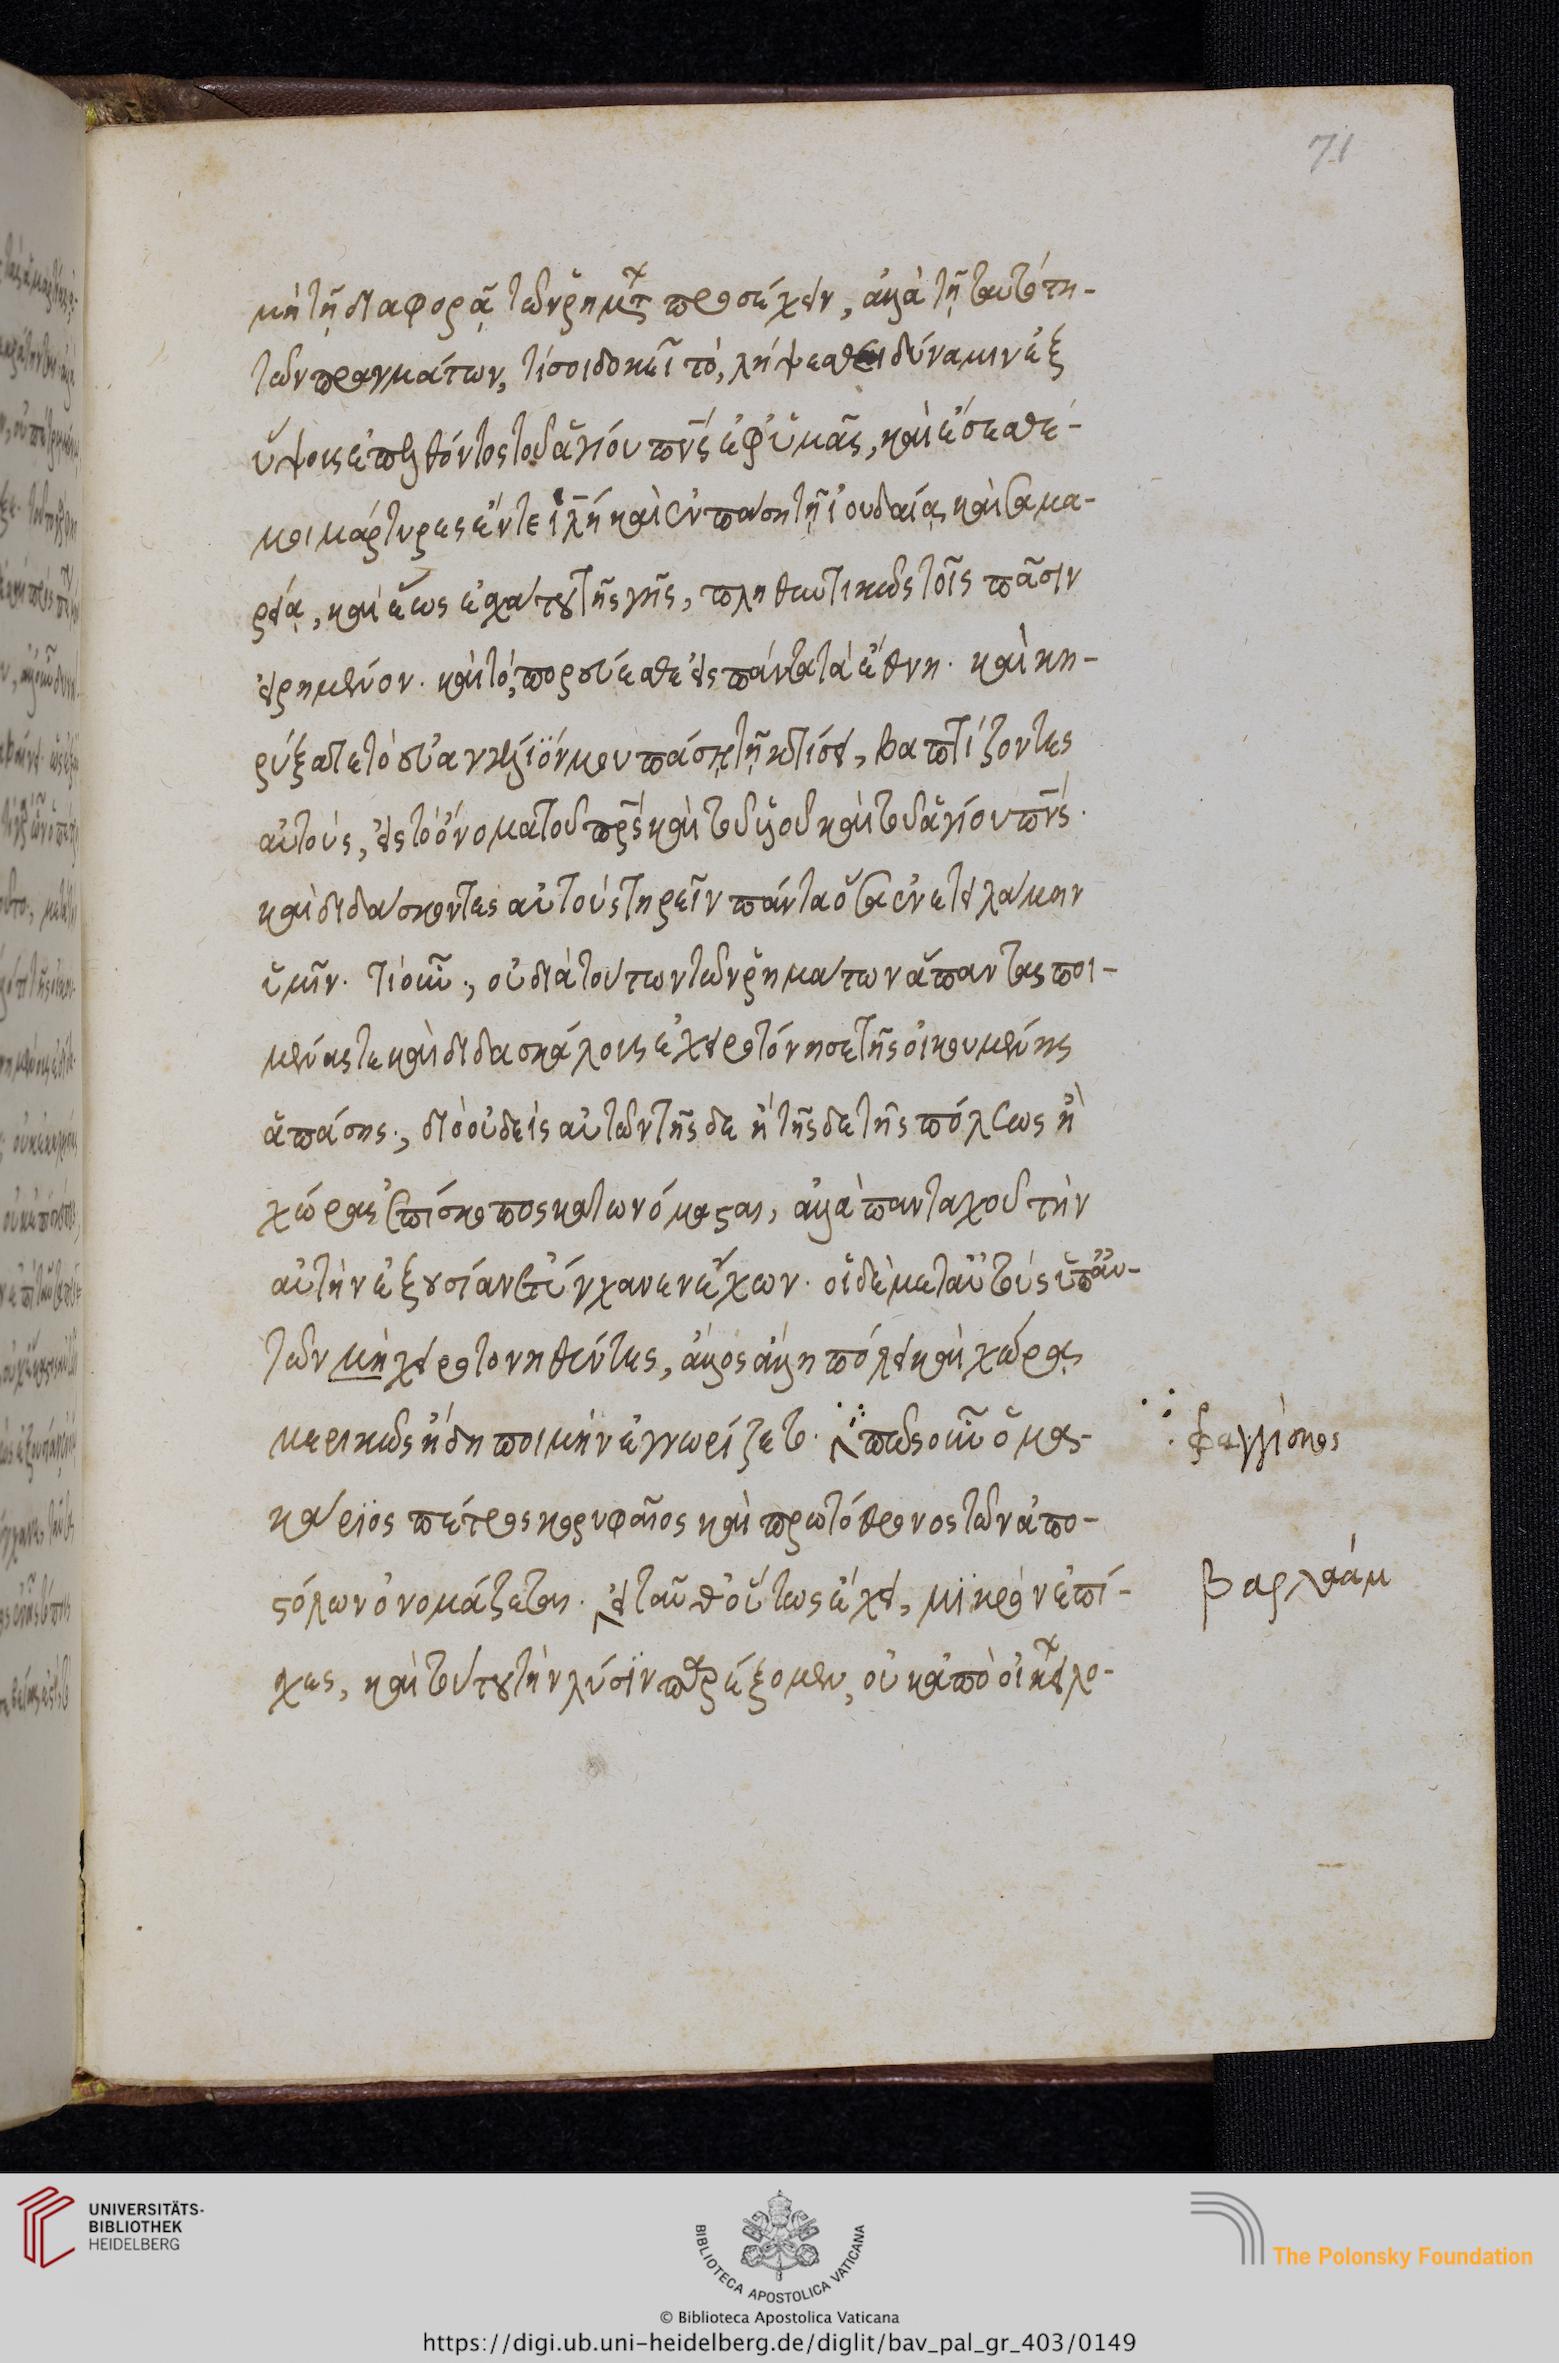 71
μὴ τῇ διαφορᾷ τῶν ῥημάτ προσέχειν, ἀλλὰ τῇ ταυτότη-
τῶν πραγμάτων, τί σοι δοκεῖ τό, λήψεσθαι δύναμιν ἐξ
ὕψους ἐπελθόντος τοῦ ἁγίου πνς ἐφ ὑμᾶς, καὶ ἔσεσθέ-
μοι μάρτυρες ἔν τε ἰλὴ καὶ ἐν πάσῃ τῇ ἰουδαίᾳ καὶ σαμα-
ρείᾳ, καὶ ἕως ἐσχάτου τῆς γῆς, πληθωτικῶς τοῖς πᾶσιν
εἰρημένον. καὶ τό, πορεύεσθε εἰς πάντα τὰ ἔθνη. καὶ κη-
ρύξατε τὸ εὐαγγέλιόν μου πάσῃ τῇ κτίσει, βαπτίζοντες
αὐτούς, εἰς τὸ ὄνομα τοῦ πρς καὶ τοῦ υἱοῦ καὶ τοῦ ἁγίου πνς.
καὶ διδάσκοντες αὐτοὺς τηρεῖν πάντα ὅσα ἐνετειλάμην
ὑμῖν. τί οὖν., οὐ διὰ τούτων τῶν ῥημάτων ἅπαντας ποι-
μένας τε καὶ διδασκάλους ἐχειροτόνησε τῆς οἰκουμένης
ἁπάσης., διὸ οὐδεὶς αὐτῶν τῆσδε ἢ τῆσδε τῆς πόλεως ἢ
χώρας ἐπίσκοπος κατωνόμασται, ἀλλὰ πανταχοῦ τὴν
αὐτὴν ἐξουσίαν ἐτύγχανεν ἔχων. οἱ δὲ μετ αὐτοὺς ὑπ αὐ-
τῶν μὴ χειροτονηθέντες, ἄλλος ἄλλῃ πόλει καὶ χώρᾳ
μερικῶς ἤδη ποιμὴν ἐγνωρίζετο. πῶς οὖν ὁ μα-
κάριος πέτρος κορυφαῖος καὶ πρωτόθρονος τῶν ἀπο-
στόλων ὀνομάζεται. εἰ ταῦθ οὕτως ἔχει, μικρὸν ἐπί-
σχες, καὶ τούτου τὴν λύσιν παρέξομεν, οὐκ ἀπὸ οἰκείο-
φραγγίσκος
βαρλαάμ
UNIVERSITÄTS-
BIBLIOTHEK
HEIDELBERG
BIBLIOTECA APOSTOLICA VATICANA
The Polonsky Foundation
© Biblioteca Apostolica Vaticana
https://digi.ub.uni-heidelberg.de/diglit/bav_pal_gr_403/0149